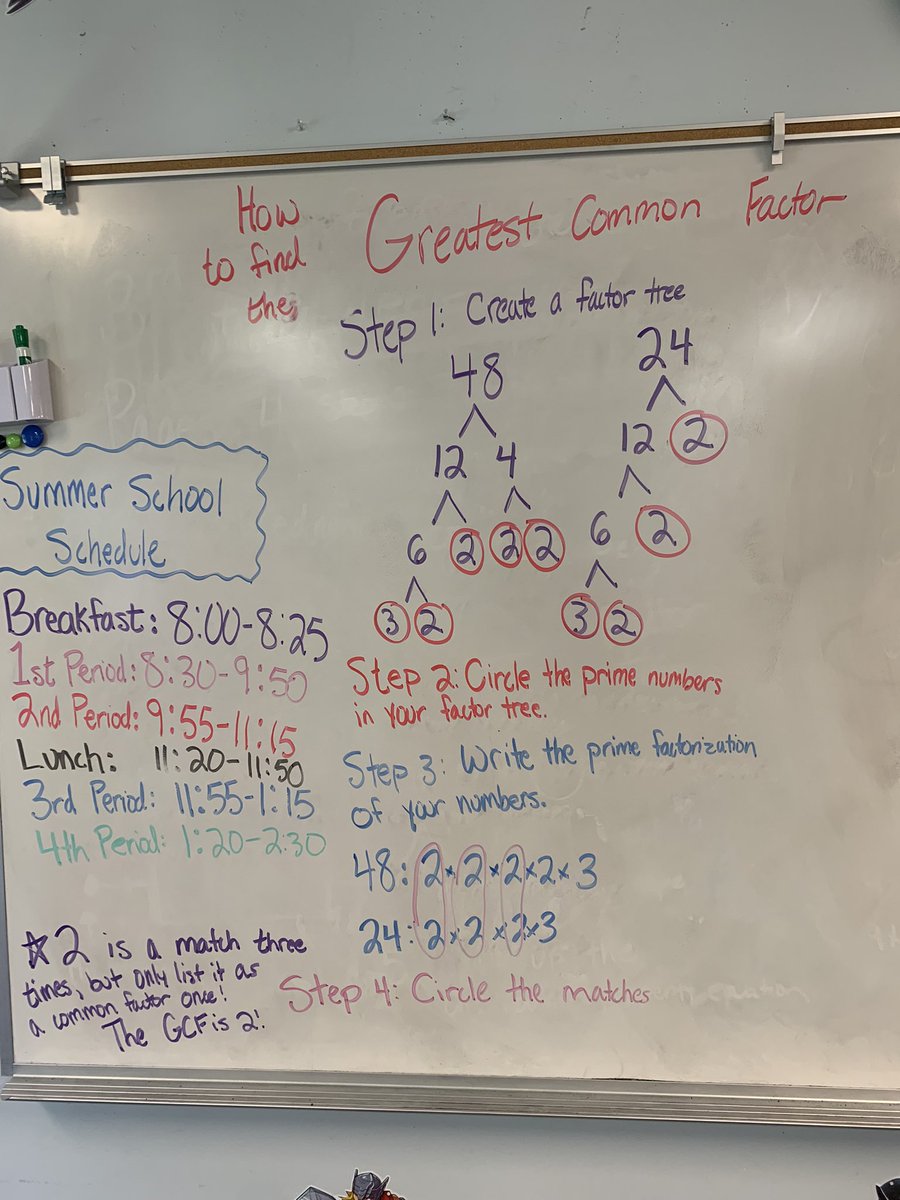 How
to find
the
Greatest Common Factor
Step 1: Create a factor tree
48 24
12 4 12 2
6 2 2 2 6 2
3 2 3 2
Step 2: Circle the prime numbers
in your factor tree.
Step 3: Write the prime factorization
of your numbers.
48: 2×2×2×2×3
24: 2×2×2×3
Step 4: Circle the matches
Summer School
Schedule
Breakfast: 8:00-8:25
1st Period: 8:30-9:50
2nd Period: 9:55-11:15
Lunch: 11:20-11:50
3rd Period: 11:55-1:15
4th Period: 1:20-2:30
☆2 is a match three
times, but only list it as
a common factor once!
The GCF is 2!